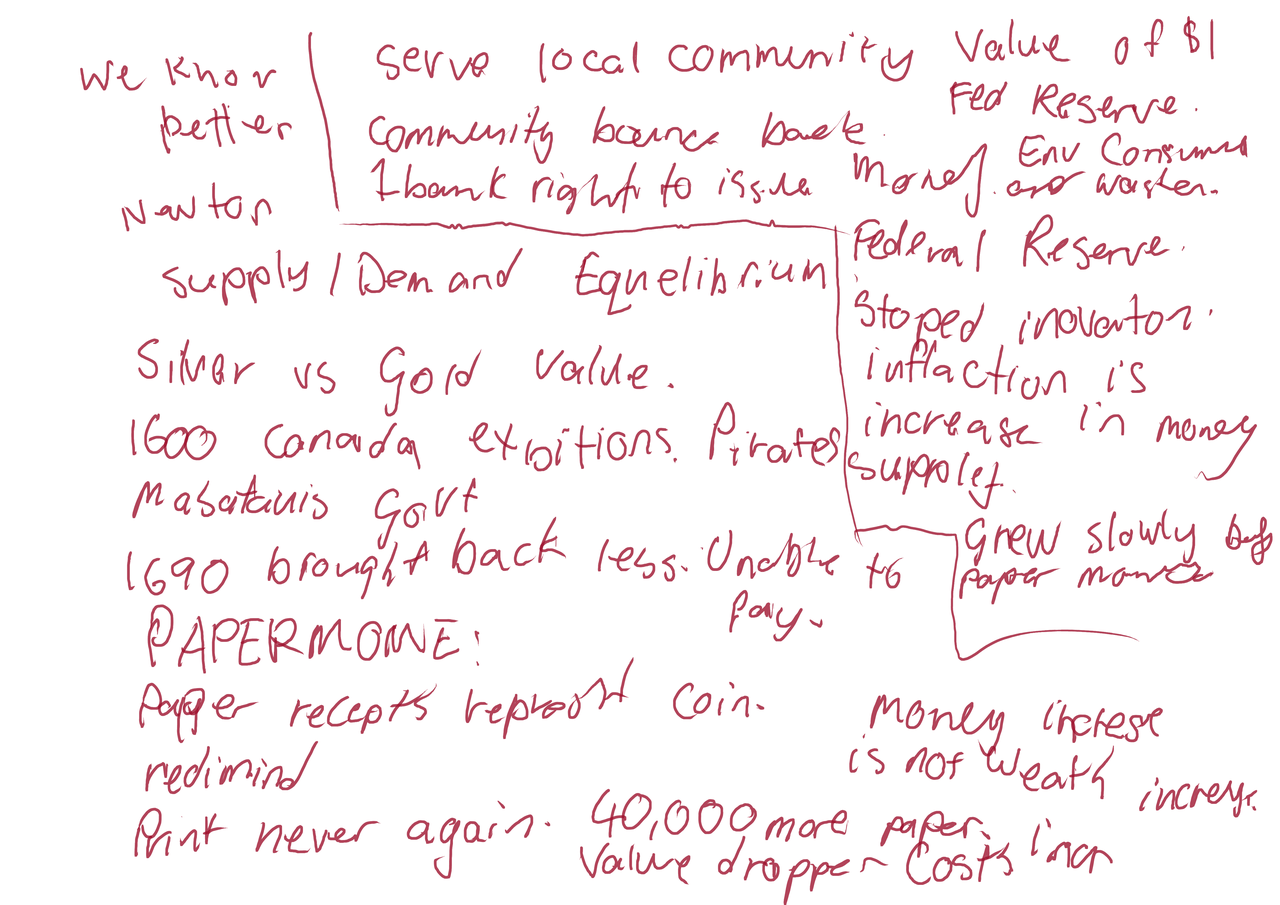 We Knor
better
Newton
serve local community
community bounce back.
1 bank right to issue
Value of $1
Fed Reserve.
Env Consumed
Money. and waster.
Federal Reserve.
Stoped inovaton.
inflaction is
increase in money
Supply.
Grew slowly
paper
supply / Demand Equelibrium
Silver vs Gold value.
1600 Canada exbitions. Pirates
Masatauis Govt
1690 brought back less. Unable to
Pay.
PAPERMONE:
Papper recepts represont coin.
redimind
Print never again. 40,000 more paper.
Value dropper - Costs incr
Money increse
is not Weath increse.